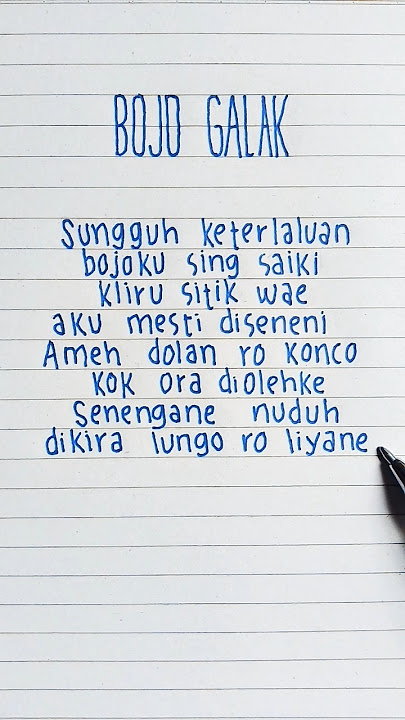 BOJO GALAK
Sungguh keterlaluan
bojoku sing saiki
kliru sitik wae
aku mesti diseneni
Ameh dolan ro konco
kok ora diolehke
Senengane nuduh
dikira lungo ro liyane